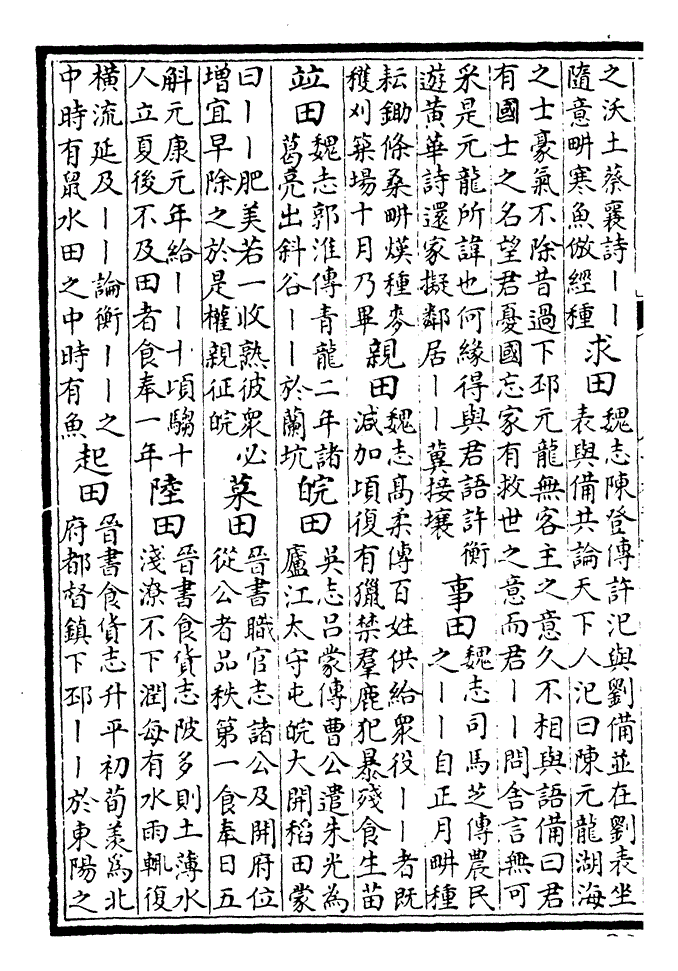 之沃土蔡襄詩丨丨
隨意畊寒魚倣經種
求田
魏志陳登傳許汜與劉備並在劉表坐
表與備共論天下人汜曰陳元龍湖海
之士豪氣不除昔過下邳元龍無客主之意久不相與語備曰君
有國士之名望君憂國忘家有救世之意而君丨丨問舍言無可
采是元龍所諱也何緣得與君語許衡
遊黃華詩還家擬鄰居丨丨冀接壤
事田
魏志司馬芝傳農民
之丨丨自正月畊種
耘鋤條桑畊熯種麥
穫刈築場十月乃畢
親田
魏志高柔傳百姓供給衆役丨丨者既
減加頃復有獵禁羣鹿犯暴殘食生苗
竝田
魏志郭淮傳青龍二年諸
葛亮出斜谷丨丨於蘭坑
皖田
吳志呂蒙傳曹公遣朱光為
廬江太守屯皖大開稻田蒙
曰丨丨肥美若一收熟彼衆必
增宜早除之於是權親征皖
菜田
晉書職官志諸公及開府位
從公者品秩第一食奉日五
斛元康元年給丨丨十頃騶十
人立夏後不及田者食奉一年
陸田
晉書食貨志陂多則土薄水
淺潦不下潤每有水雨輒復
橫流延及丨丨論衡丨丨之
中時有鼠水田之中時有魚
起田
晉書食貨志升平初荀羨為北
府都督鎮下邳丨丨於東陽之